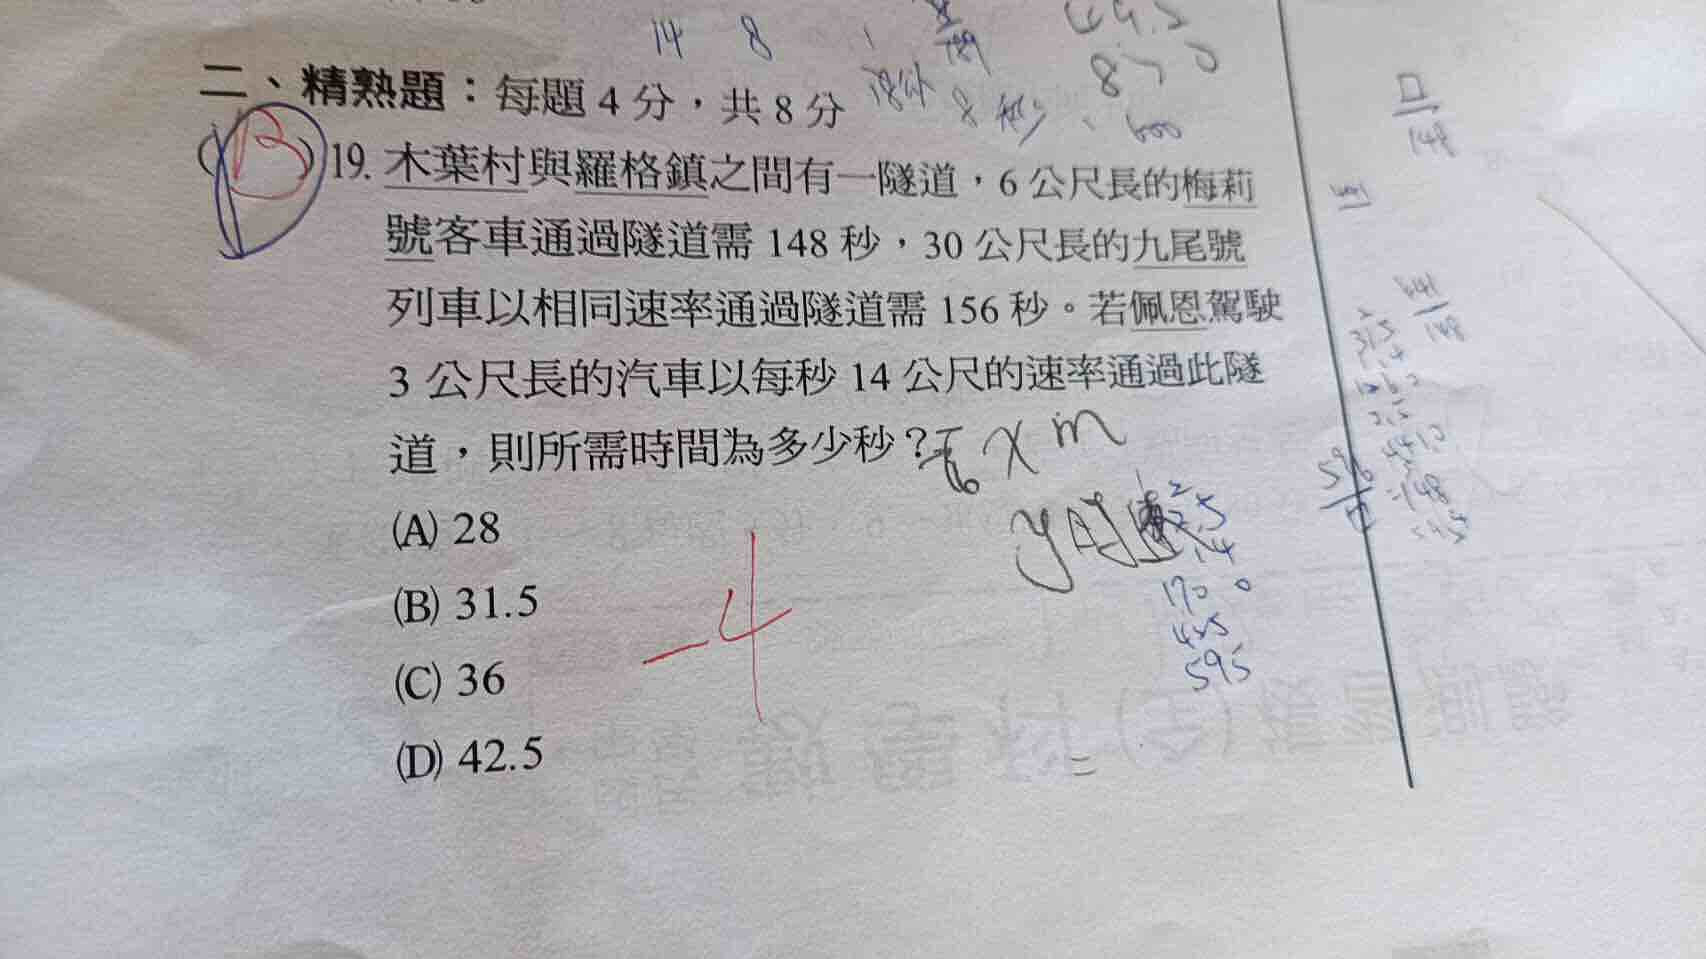 14 8
二、精熟題：每題4分，共8分
(B)19. 木葉村與羅格鎮之間有一隧道，6公尺長的梅莉
號客車通過隧道需148秒，30公尺長的九尾號
列車以相同速率通過隧道需156秒。若佩恩駕駛
3公尺長的汽車以每秒14公尺的速率通過此隧
道，則所需時間為多少秒？
x m
(A) 28
(B) 31.5
(C) 36
(D) 42.5
-4
y
14
170 0
425
595
□
148